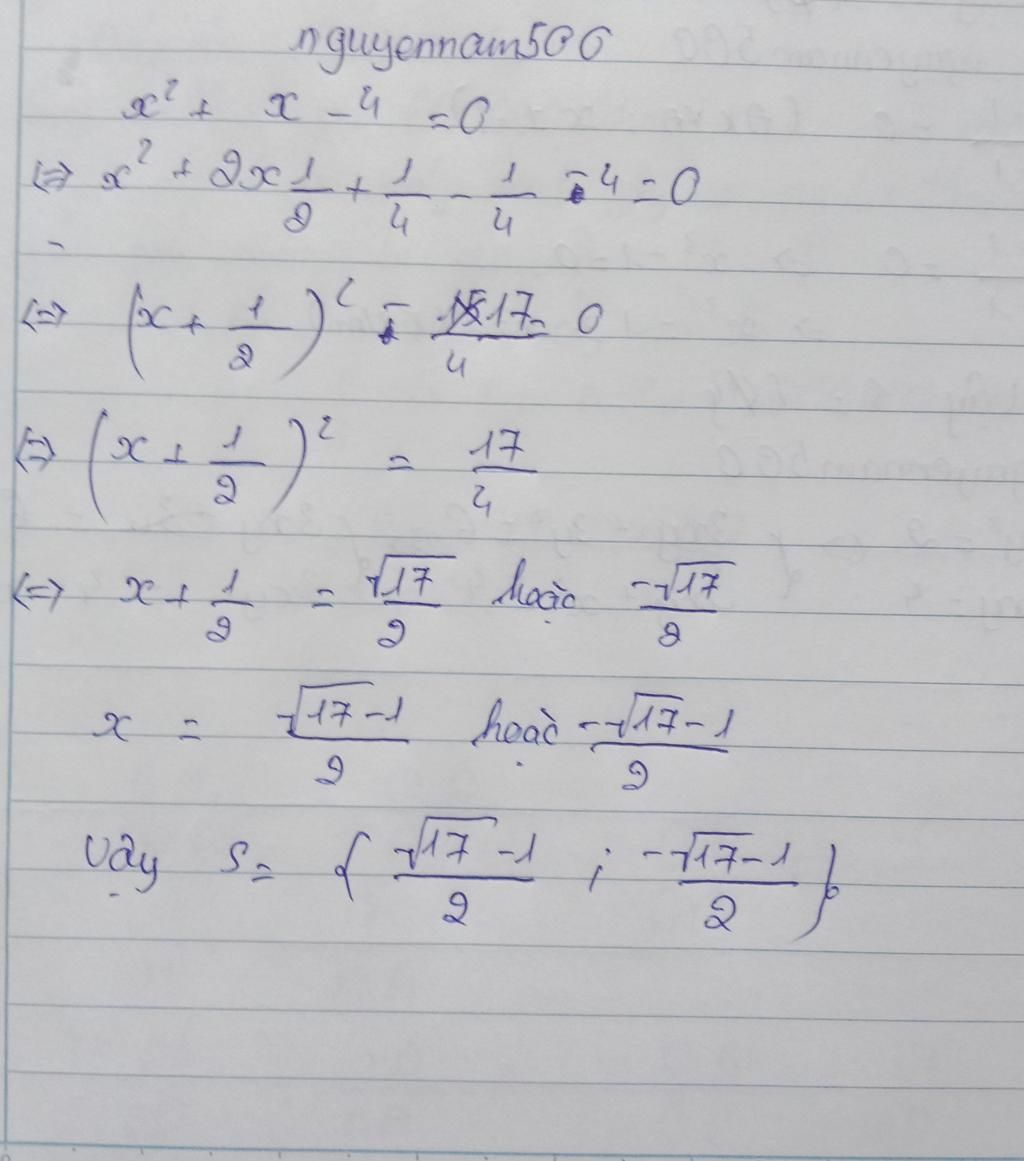 nguyennam500
x² + x - 4 = 0
⇔ x² + 2x 1/2 + 1/4 - 1/4 - 4 = 0
⇔ (x + 1/2)² - 17/4 = 0
⇔ (x + 1/2)² = 17/4
⇔ x + 1/2 = √17/2 hoặc -√17/2
x = (√17 - 1)/2 hoặc (-√17 - 1)/2
Vậy S = { (√17 - 1)/2 ; (-√17 - 1)/2 }